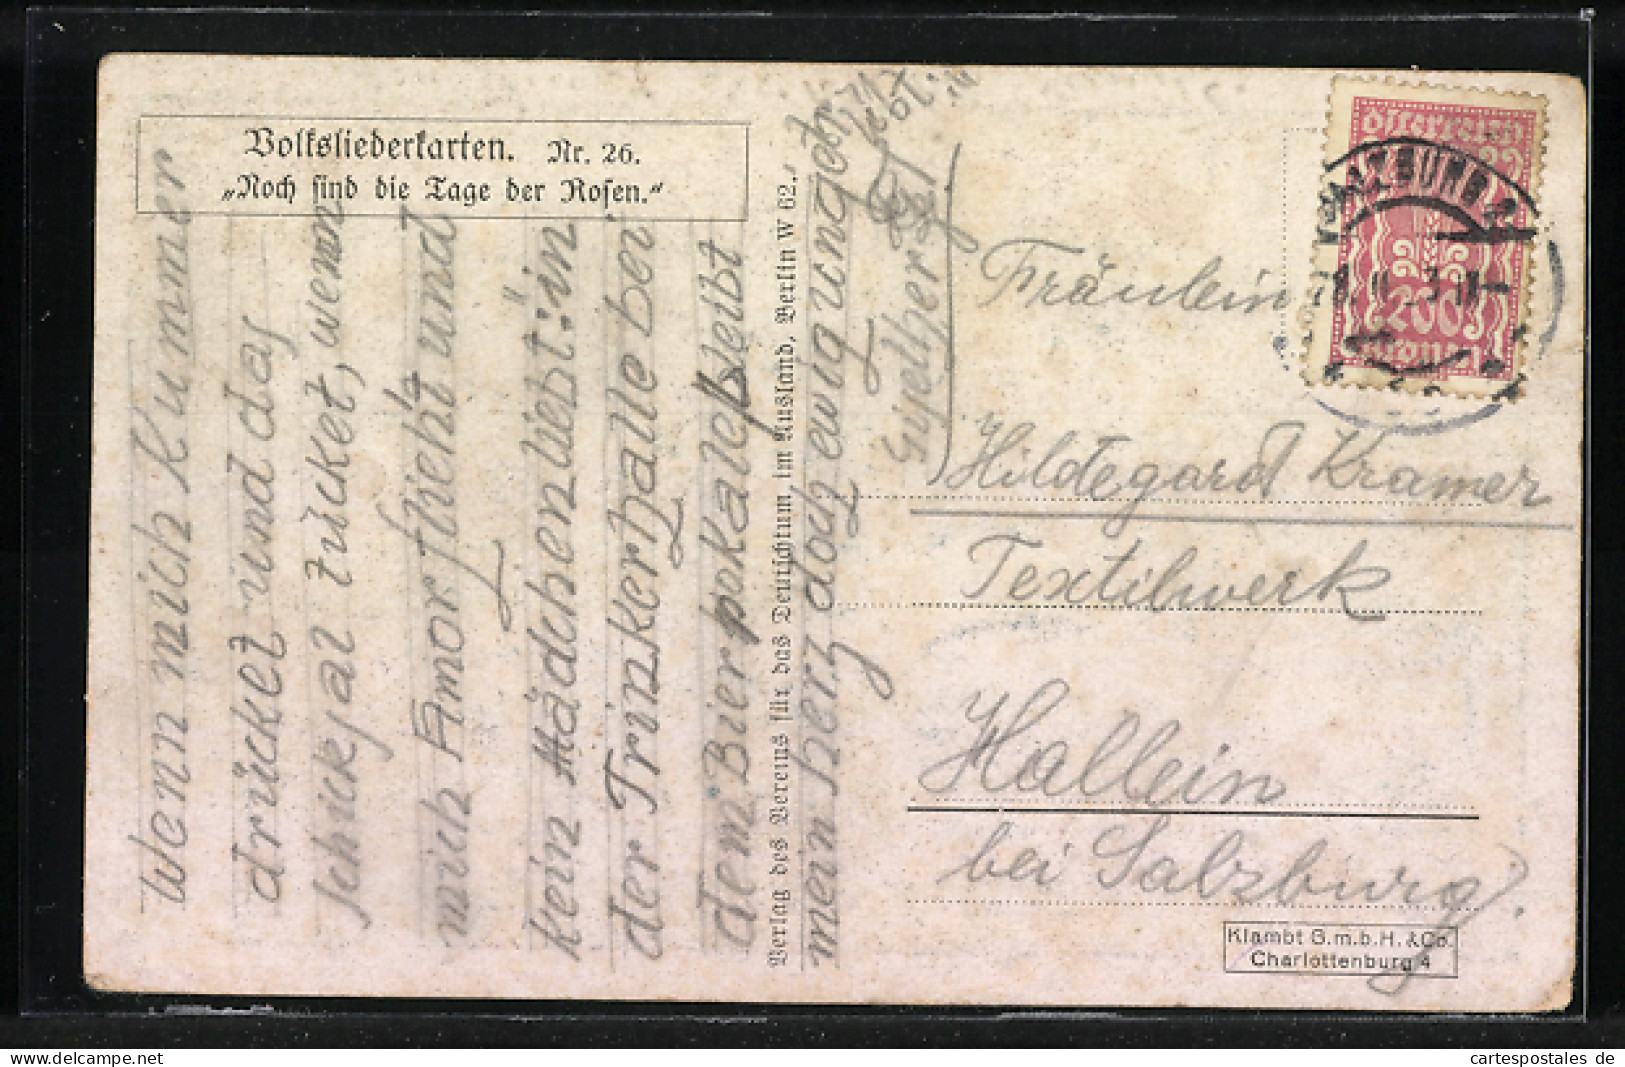 Volksliederkarten. Nr. 26.
„Noch sind die Tage der Rosen.“
Wenn mich Kummer
drücket und das
schicksal zücket, wenn
mich Amor flieht und
kein Mädchen liebt: in
der Trinkerhalle bei
dem Bierpokale bleibt
mein herz doch ewig ungetrübt.
Giselher
Verlag des Vereins für das Deutschtum im Ausland, Berlin W 62.
Fräulein
Hildegard Kramer
Textilwerk
Hallein
bei Salzburg.
österreich
SALZBURG 2
200
Kronen
Klambt G.m.b.H. & Co.
Charlottenburg 4
cartespostales de